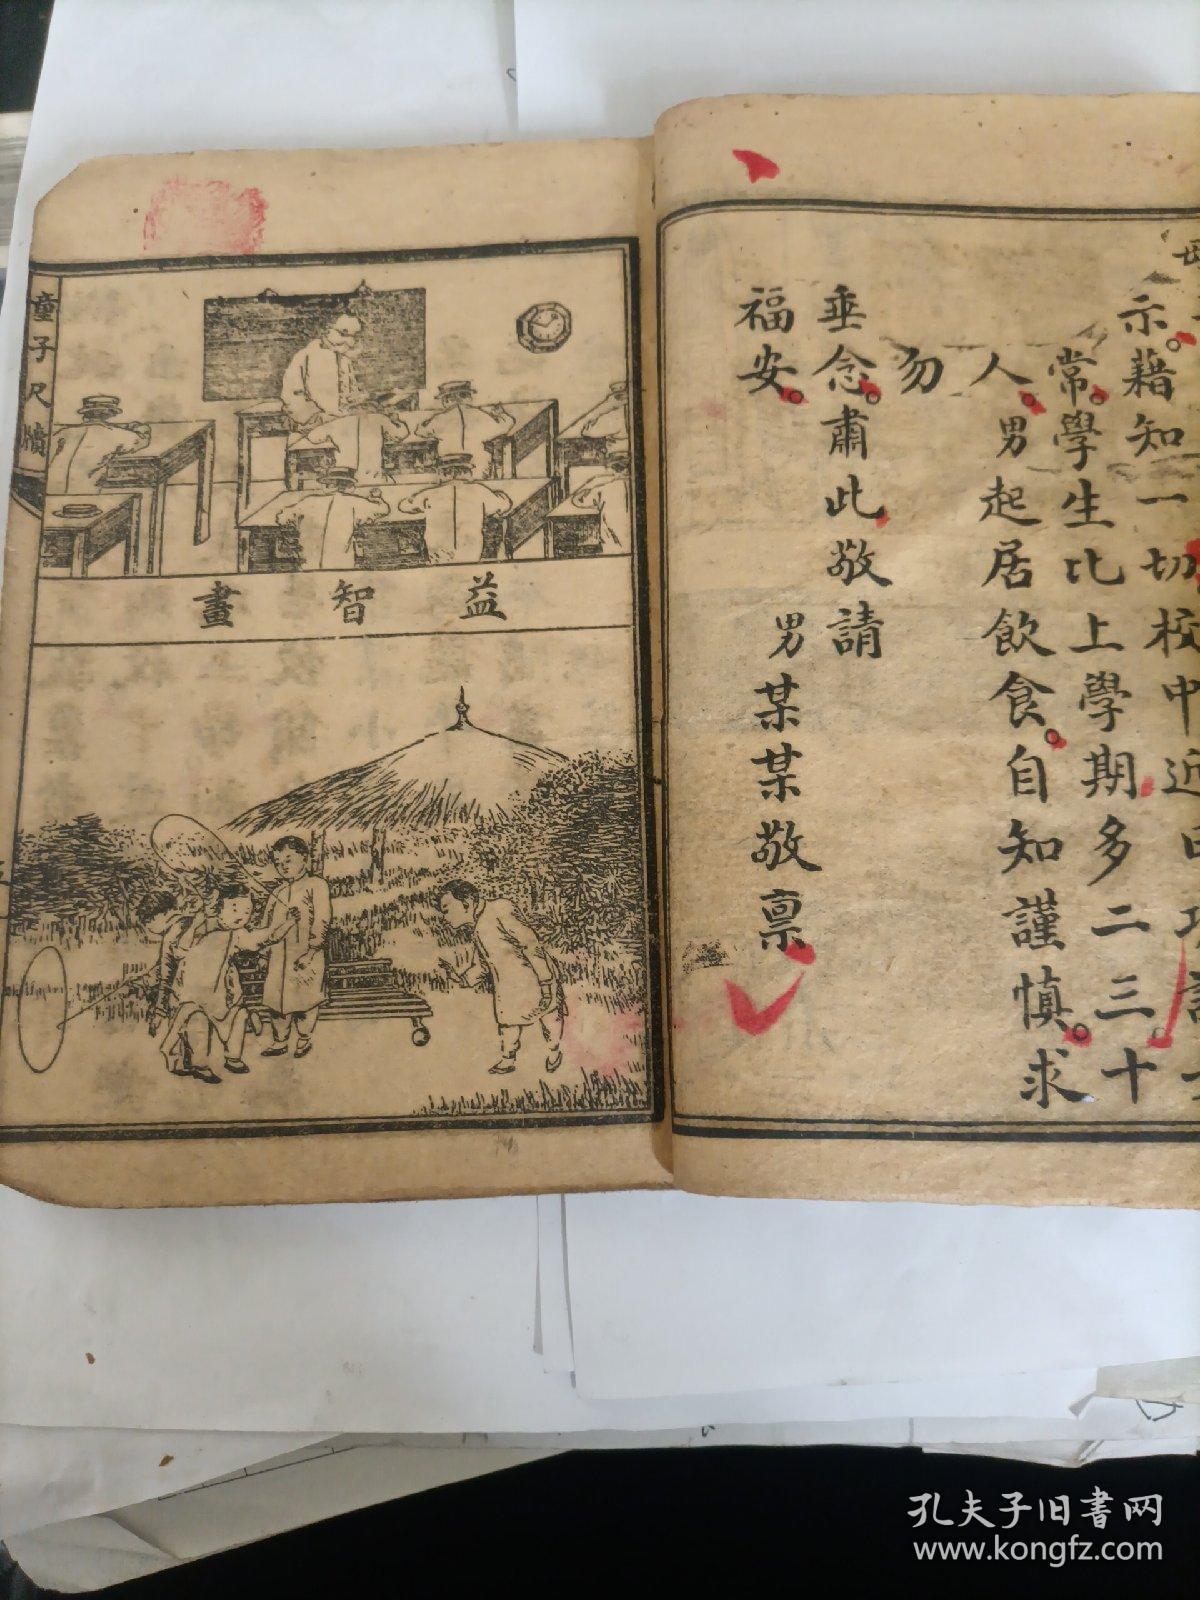 示。藉知一切校中近
常。學生比上學期多二三十
人。男起居飲食。自知謹慎。求
勿
垂念。肅此敬請
福安。
男某某敬禀
童子尺牘
益智畫
孔夫子旧書网
www.kongfz.com